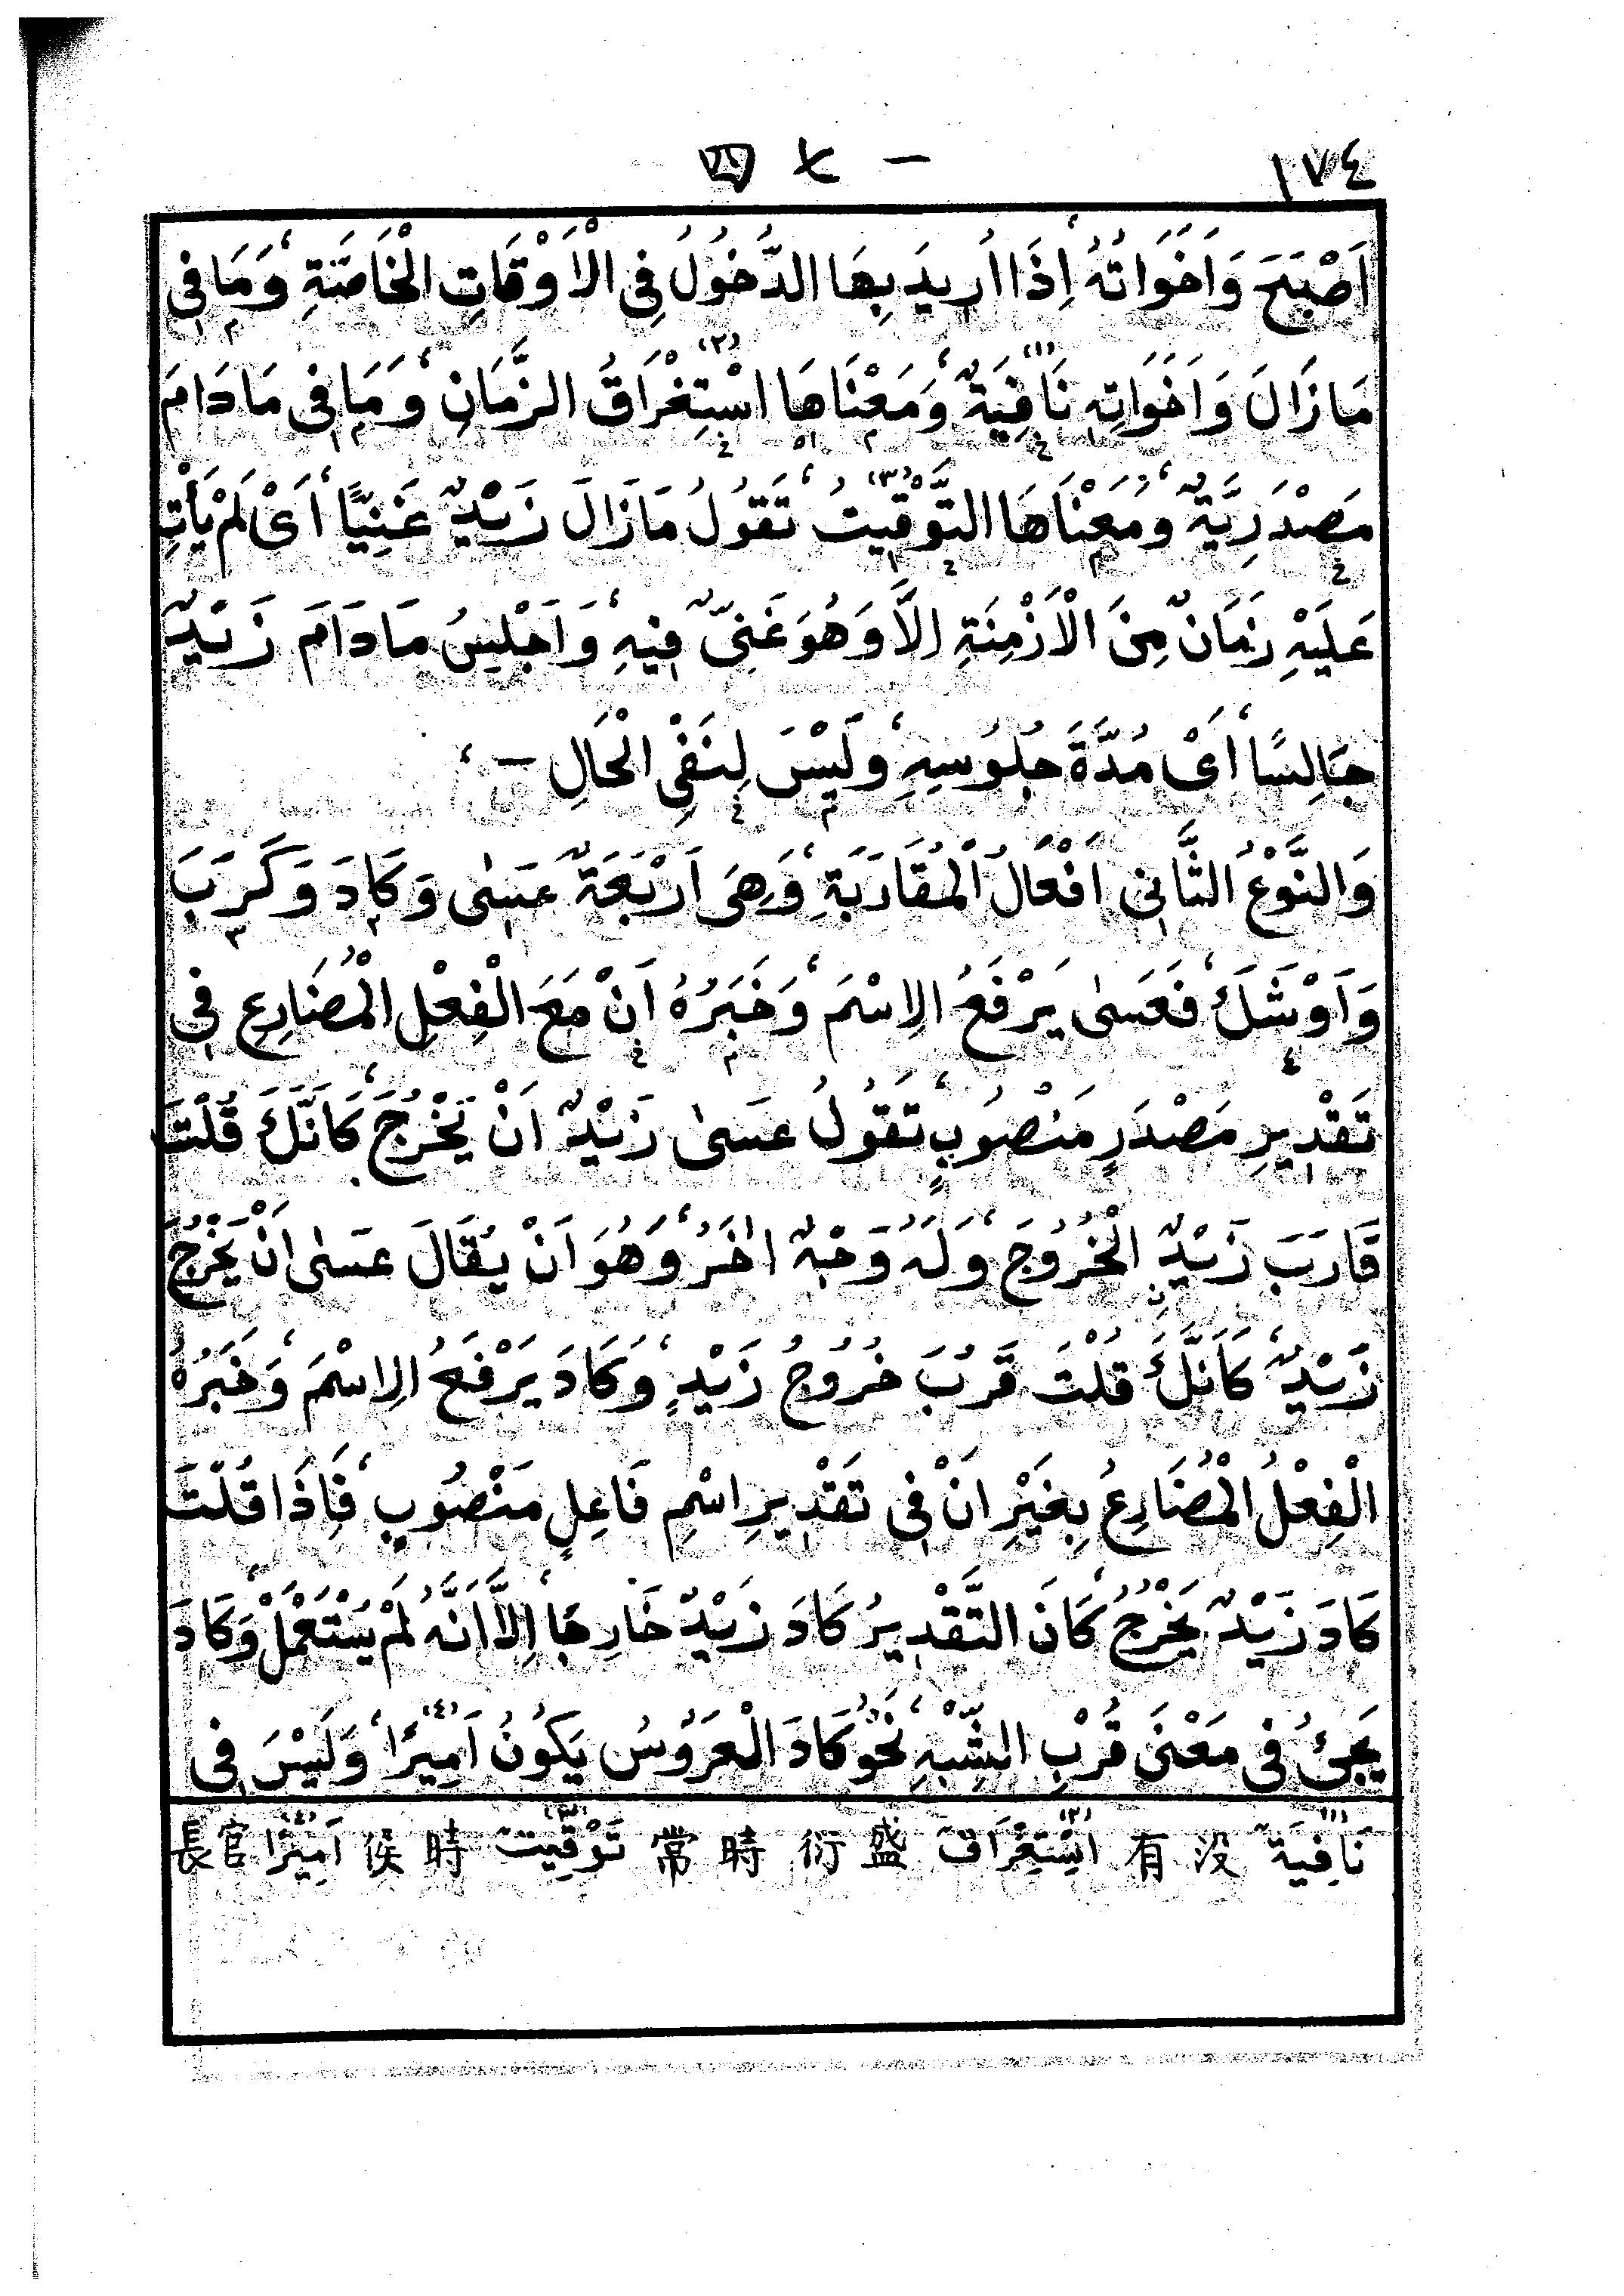 ١٧٤
一 七 四
اَصْبَحَ وَاَخَوَاتُهُ، اِذَا اُرِيدَ بِهَا الدُّخُولُ فِى الْاَوْقَاتِ الْخَاصَّةِ، وَمَا فِى
مَازَالَ وَاَخَوَاتِهِ نَافِيَةٌ (١)، وَمَعْنَاهَا اسْتِغْرَاقُ (٢) الزَّمَانِ، وَمَا فِى مَادَامَ
مَصْدَرِيَّةٌ، وَمَعْنَاهَا التَّوْقِيتُ (٣)، تَقُولُ مَازَالَ زَيْدٌ غَنِيًّا، اَىْ لَمْ يَأْتِ
عَلَيْهِ زَمَانٌ مِنَ الْاَزْمِنَةِ اِلَّا وَهُوَ غَنِىٌّ فِيهِ، وَاَجْلِسُ مَادَامَ زَيْدٌ
جَالِسًا، اَىْ مُدَّةَ جُلُوسِهِ، وَلَيْسَ لِنَفْىِ الْحَالِ — ،
وَالنَّوْعُ الثَّانِى اَفْعَالُ الْمُقَارَبَةِ، وَهِىَ اَرْبَعَةٌ عَسٰى وَكَادَ وَكَرَبَ
وَاَوْشَكَ، فَعَسٰى يَرْفَعُ الِاسْمَ، وَخَبَرُهُ اَنْ مَعَ الْفِعْلِ الْمُضَارِعِ فِى
تَقْدِيرِ مَصْدَرٍ مَنْصُوبٍ، تَقُولُ عَسٰى زَيْدٌ اَنْ يَخْرُجَ، كَاَنَّكَ قُلْتَ
قَارَبَ زَيْدٌ الْخُرُوجَ، وَلَهُ وَجْهٌ اٰخَرُ، وَهُوَ اَنْ يُقَالَ عَسٰى اَنْ يَخْرُجَ
زَيْدٌ، كَاَنَّكَ قُلْتَ قَرُبَ خُرُوجُ زَيْدٍ، وَكَادَ يَرْفَعُ الِاسْمَ، وَخَبَرُهُ
الْفِعْلُ الْمُضَارِعُ بِغَيْرِ اَنْ فِى تَقْدِيرِ اسْمِ فَاعِلٍ مَنْصُوبٍ، فَاِذَا قُلْتَ
كَادَ زَيْدٌ يَخْرُجُ، كَانَ التَّقْدِيرُ كَادَ زَيْدٌ خَارِجًا، اِلَّا اَنَّهُ لَمْ يُسْتَعْمَلْ، وَكَادَ
يَجِىْءُ فِى مَعْنَى قُرْبِ الشِّبْهِ، نَحْوُ كَادَ الْعَرُوسُ يَكُونُ اَمِيرًا (٤)، وَلَيْسَ فِى
(١) نَافِيَةٌ 没有 (٢) اسْتِغْرَاقٌ 盛衍時常 (٣) تَوْقِيتٌ 時侯 (٤) اَمِيرًا 官長